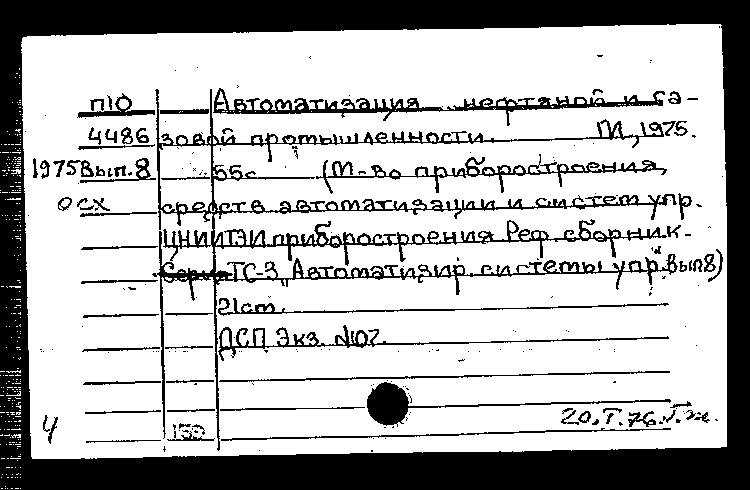 П10 Автоматизация нефтяной и га-
4486 зовой промышленности. М., 1975.
1975 Вып. 8 55с (М-во приборостроения,
ОСХ средств автоматизации и систем упр.
ЦНИИТЭИ приборостроения. Реф. сборник.
Серия ТС-3 "Автоматизир. системы упр." Вып 8)
21 ст.
ДСП Экз. №107.
4 159 20.I.76.